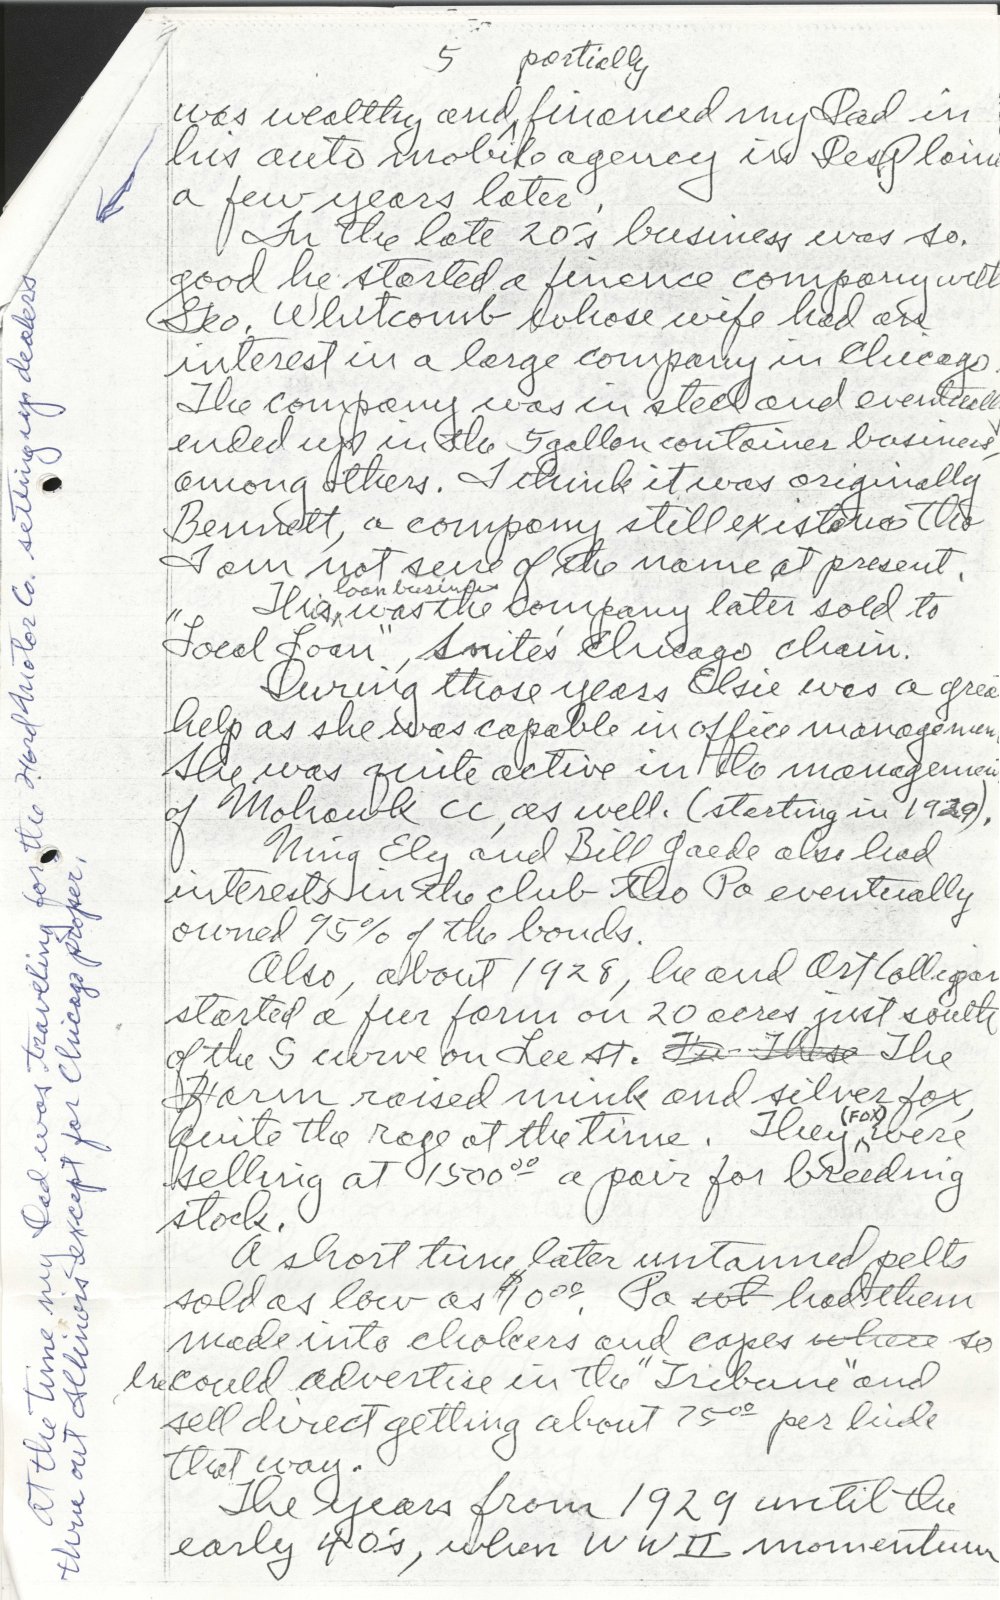 5 partially
was wealthy and ^ financed my Dad in
his auto mobile agency in Des Plain
a few years later.
In the late 20's business was so
good he started a finance company with
Geo. Whitcomb whose wife had an
interest in a large company in Chicago.
The company was in steel and eventually
ended up in the 5 gallon container business,
among others. I think it was originally
Bennett, a company still existing tho
I am not sure of the name at present.
loan business
This ^ was the company later sold to
"Local Loan", Snite's Chicago chain.
During those years Elsie was a grea
help as she was capable in office managemen
She was quite active in the managemen
of Mohawk CC, as well. (starting in 1929).
Ning Ely and Bill Gaede also had
interests in the club tho Pa eventually
owned 95% of the bonds.
Also, about 1928, he and Art Colligan
started a fur farm on 20 acres just south
of the S curve on Lee St. The
Farm raised mink and silver fox,
quite the rage at the time. They ^ (FOX) were
selling at 1500.00 a pair for breeding
stock.
A short time later untanned pelts
sold as low as $10.00. Pa had them
made into chokers and capes where so
he could advertise in the "Tribune" and
sell direct getting about 75.00 per hide
that way.
The years from 1929 until the
early 40's, when WW II momentum
at the time my Dad was traveling for the Ford Motor Co. setting up dealers
thru out Illinois except for Chicago proper.